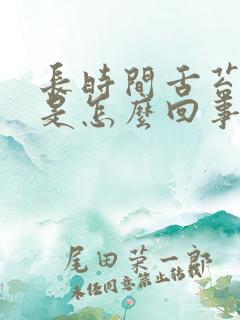 長時間舌苔
是怎麼回事
尾田荣一郎
未经同意禁止转载